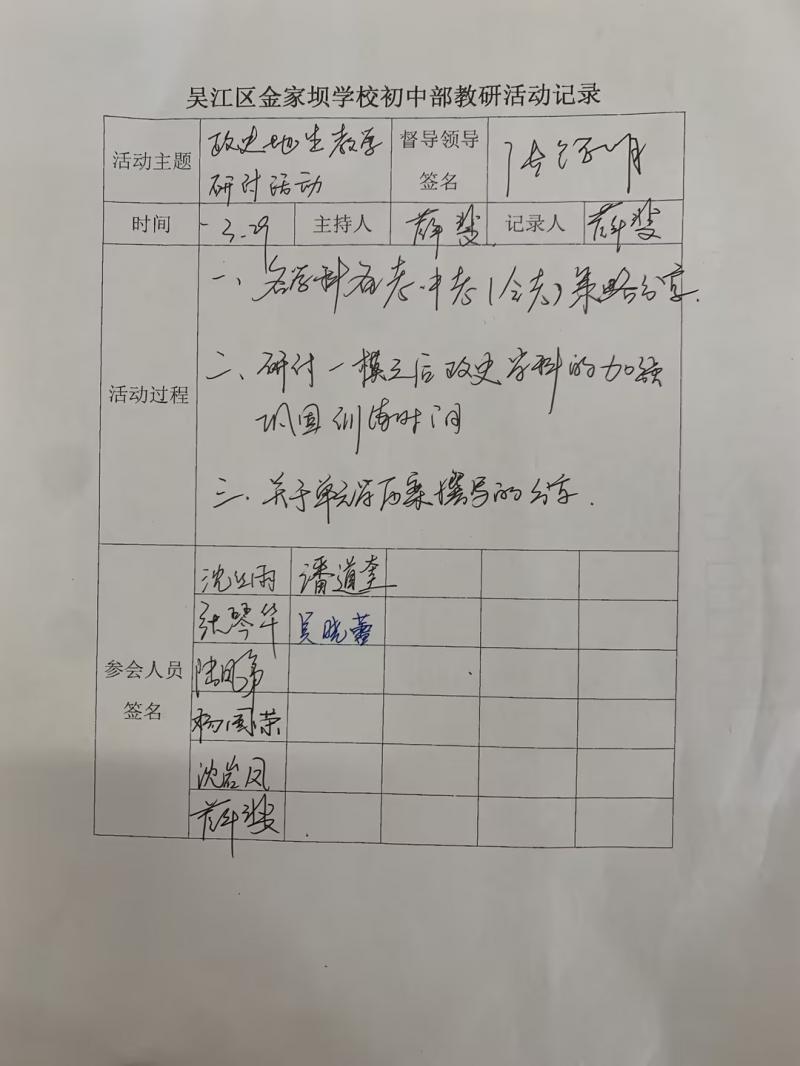 吴江区金家坝学校初中部教研活动记录
活动主题 政史地生教学 督导领导
研讨活动 签名
时间 3.29 主持人 薛斐 记录人 薛斐
一、各学科备考中考(会考)策略分享.
活动过程 二、研讨一模之后政史学科的加强
巩固训练时间
三.关于单元学历案撰写的分享.
沈红雨 潘道奎
张琴华 吴晓蕾
参会人员 陆凤弟
签名 杨国荣
沈岩凤
薛斐